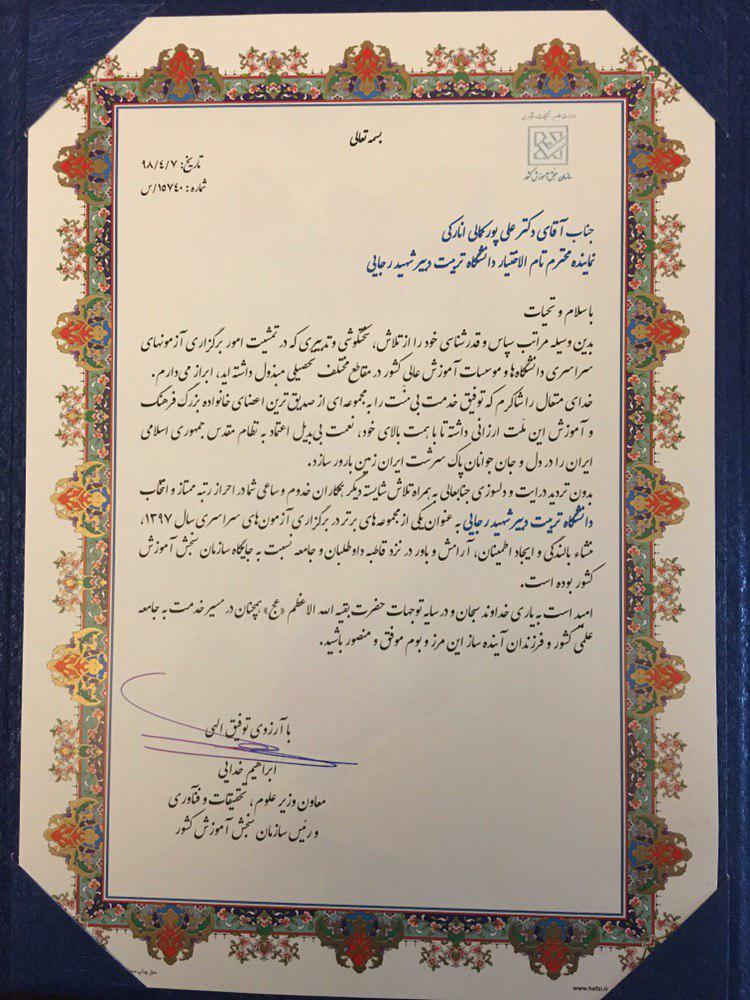 وزارت علوم، تحقیقات و فناوری
سازمان سنجش آموزش کشور
بسمه تعالی
تاریخ: ۹۸/۴/۷
شماره: ۱۵۷۴۰/س
جناب آقای دکتر علی پورکمالی انارکی
نماینده محترم تام الاختیار دانشگاه تربیت دبیر شهید رجایی
با سلام و تحیات
بدین وسیله مراتب سپاس و قدرشناسی خود را از تلاش، سختکوشی و تدبیری که در تمشیت امور برگزاری آزمونهای
سراسری دانشگاه‌ها و موسسات آموزش عالی کشور در مقاطع مختلف تحصیلی مبذول داشته اید، ابراز می‌دارم.
خدای متعال را شاکرم که توفیق خدمت بی‌منّت را به مجموعه‌ای از صدیق ترین اعضای خانواده بزرگ فرهنگ
و آموزش این ملت ارزانی داشته تا با همت بالای خود، نعمت بی‌بدیل اعتماد به نظام مقدس جمهوری اسلامی
ایران را در دل و جان جوانان پاک سرشت ایران زمین بارور سازد.
بدون تردید درایت و دلسوزی جنابعالی به همراه تلاش شایسته دیگر همکاران خدوم و ساعی شما در احراز رتبه ممتاز و انتخاب
دانشگاه تربیت دبیر شهید رجایی به عنوان یکی از مجموعه های برتر در برگزاری آزمون‌های سراسری سال ۱۳۹۷،
منشاء بالندگی و ایجاد اطمینان، آرامش و باور در نزد قاطبه داوطلبان و جامعه نسبت به جایگاه سازمان سنجش آموزش
کشور بوده است.
امید است به یاری خداوند سبحان و در سایه توجهات حضرت بقیه الله الاعظم «عج» همچنان در مسیر خدمت به جامعه
علمی کشور و فرزندان آینده ساز این مرز و بوم موفق و منصور باشید.
با آرزوی توفیق الهی
ابراهیم خدایی
معاون وزیر علوم، تحقیقات و فنّاوری
و رئیس سازمان سنجش آموزش کشور
حق چاپ
www.hefzi.ir